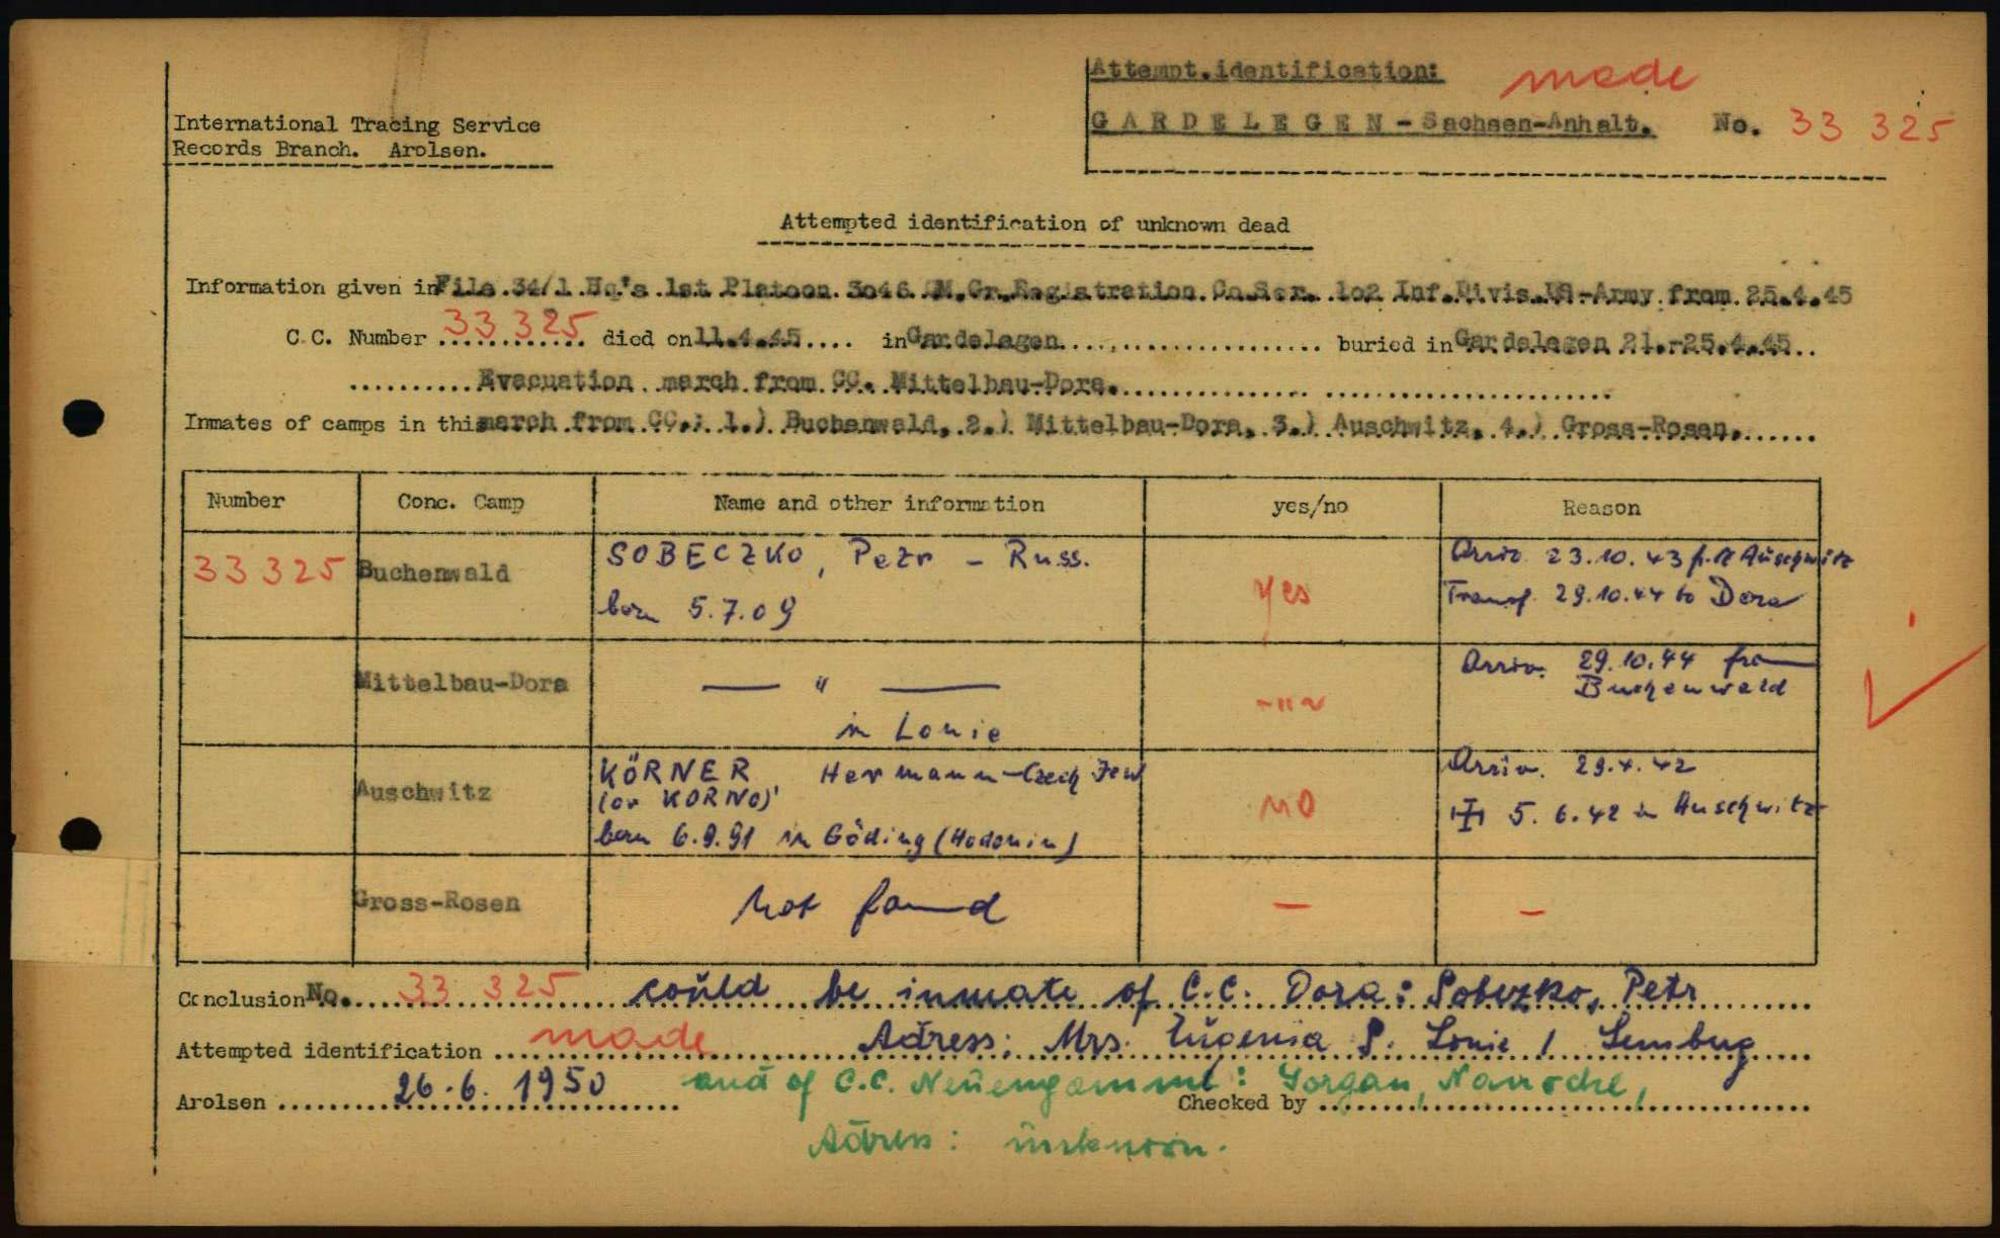 Attempt.identification: made
GARDELEGEN - Sachsen-Anhalt. No. 33 325
International Tracing Service
Records Branch. Arolsen.
Attempted identification of unknown dead
Information given in File 34/1 Hq's 1st Platoon 3046 QM.Gr.Registration Co.Ser. 102 Inf.Divis.US-Army from 25.4.45
C.C. Number 33 325 died on 11.4.45 in Gardelegen buried in Gardelegen 21.-25.4.45
Evacuation march from CC. Mittelbau-Dora.
Inmates of camps in this march from CC.: 1.) Buchenwald, 2.) Mittelbau-Dora, 3.) Auschwitz, 4.) Gross-Rosen.
Number Conc. Camp Name and other information yes/no Reason
33 325 Buchenwald SOBECZKO, Petr - Russ. yes Arriv. 23.10.43 Auschwitz
born 5.7.09 Transf. 29.10.44 to Dora
Mittelbau-Dora — " — -"- Arriv. 29.10.44 from
Buchenwald
in Lonie
Auschwitz KÖRNER Hermann - Czech Jew no Arriv. 29.4.42
(or KORNO)
born 6.9.91 in Göding (Hodonin) 5.6.42 in Auschwitz
Gross-Rosen not found — —
Conclusion No. 33 325 could be inmate of C.C. Dora: Sobezko, Petr
Attempted identification made Adress: Mrs. Eugenia S. Lonie / Lemburg
Arolsen 26.6.1950 and of C.C. Neuengamme: Gorgan,
Checked by
Adress: unknown.